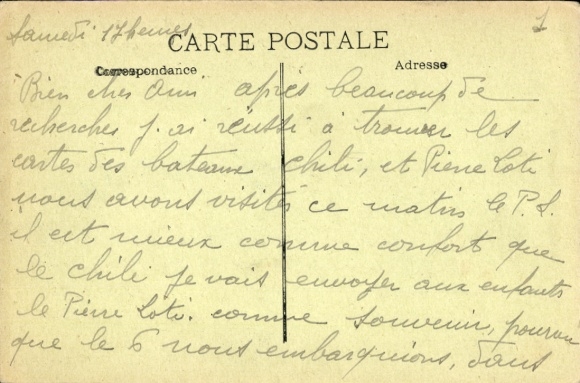 Samedi 17 heures
1
CARTE POSTALE
Correspondance
Adresse
Bien cher Ami après beaucoup de
recherches j'ai réussi à trouver les
cartes des bateaux Chili, et Pierre Loti
nous avons visités ce matin le P. L.
il est mieux comme confort que
le Chili je vais envoyer aux enfants
le Pierre Loti. comme souvenir, pourvu
que le 6 nous embarquions, dans